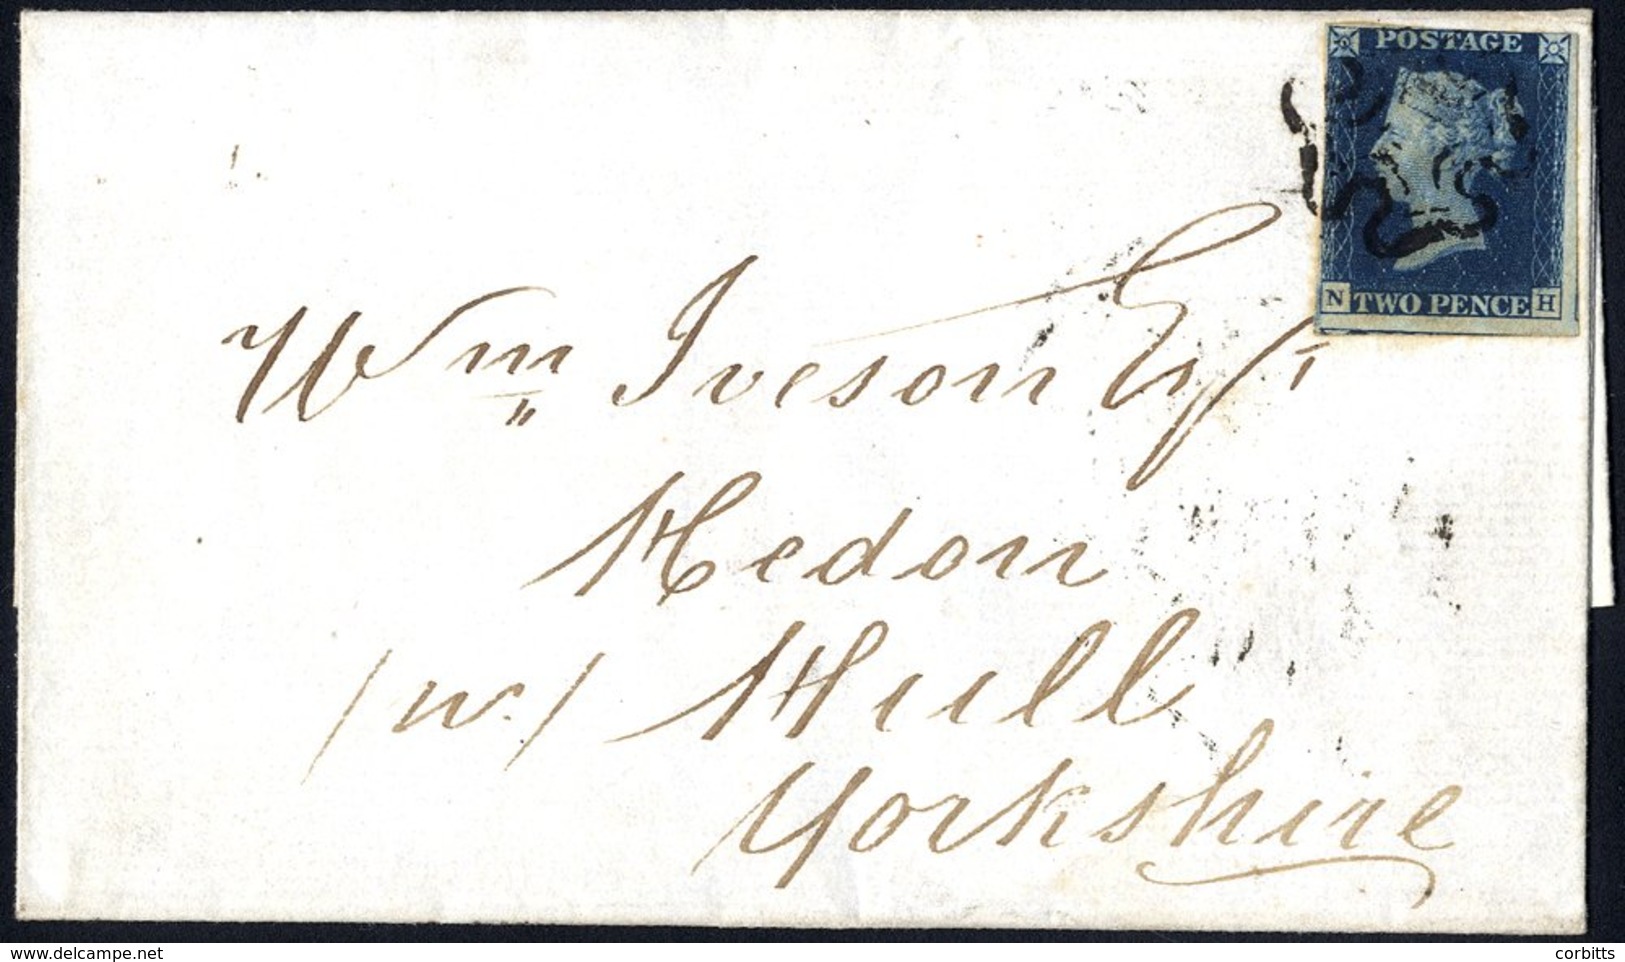 POSTAGE
N TWO PENCE H
Wm Iveson Esqr
Hedon
/w/ Hull
Yorkshire
delcampe.net
corbitts